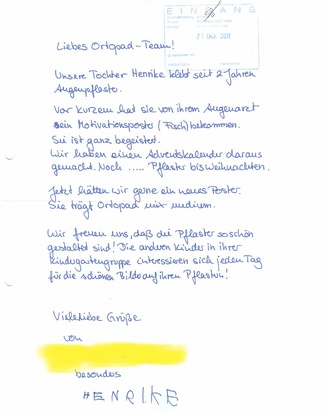 EINGANG
21. Dez. 2011
Liebes Ortopad-Team!
Unsere Tochter Henrike klebt seit 2 Jahren
Augenpflaster.
Vor kurzem hat sie von ihrem Augenarzt
ein Motivationsposter (Fisch) bekommen.
Sie ist ganz begeistert.
Wir haben einen Adventskalender daraus
gemacht. Noch ..... Pflaster bis Weihnachten.
Jetzt hätten wir gerne ein neues Poster.
Sie trägt Ortopad medium.
Wir freuen uns, daß die Pflaster so schön
gestaltet sind! Die andren Kinder in ihrer
Kindergartengruppe interessieren sich jeden Tag
für die schönen Bilder auf ihren Pflastern!
Viele liebe Grüße
von
besonders
HENRIKE